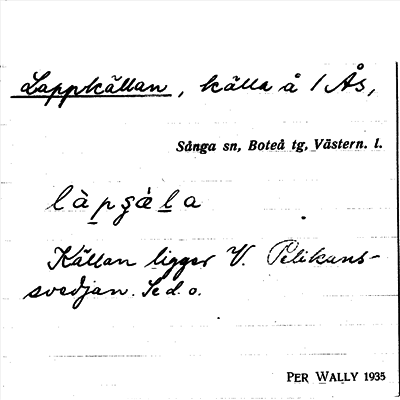 Lappkällan, källa å 1 Ås,
Sånga sn, Boteå tg, Västern. l.
làpʂæ̀la
Källan ligger V. Pelikans-
svedjan. Se d. o.
PER WALLY 1935